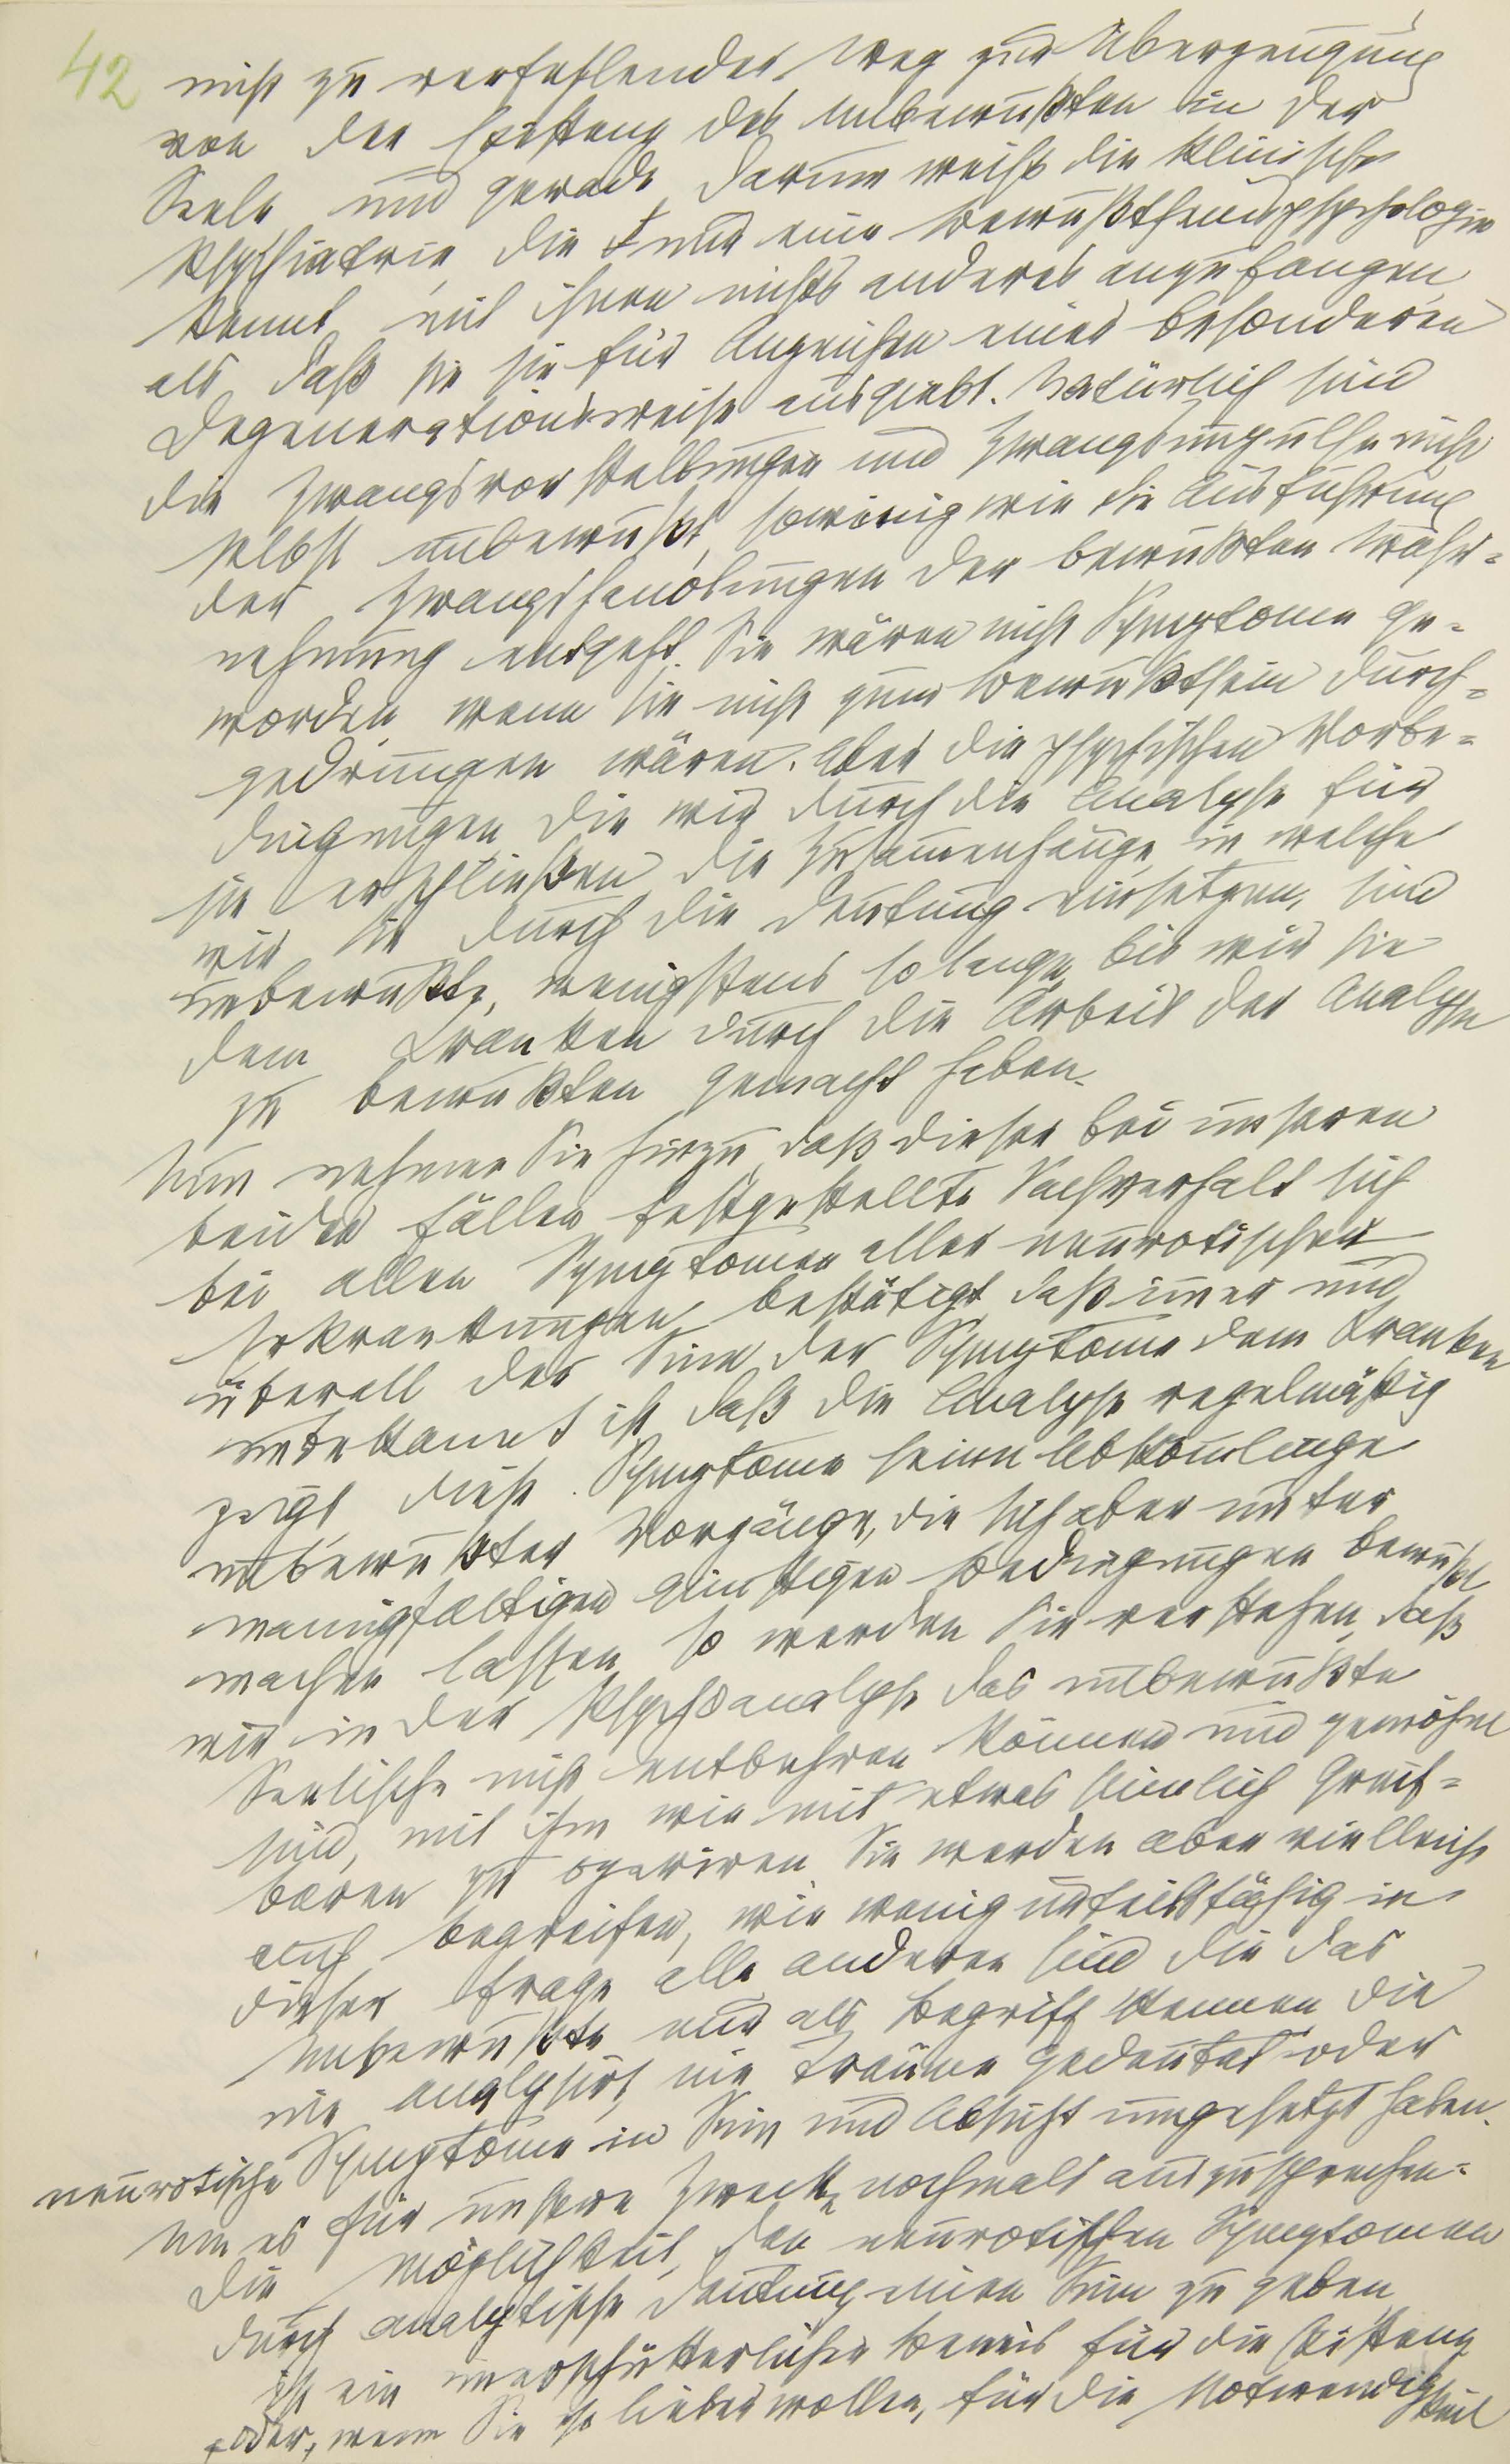 42
nicht zu verfehlender Weg zur Überzeugung
von der Existenz des Unbewußten in der
Seele und gerade darum weiß die klinische
Psychiatrie, die nur eine Bewußtseinspsychologie
kennt, mit ihnen nichts anderes anzufangen
als daß sie sie für Anzeichen einer besonderen
Degenerationsweise ausgiebt. Natürlich sind
die Zwangsvorstellungen und Zwangsimpulse nicht
selbst unbewußt, sowenig wie die Ausführung
der Zwangshandlungen der bewußten Wahr-
nehmung entgeht. Sie wären nicht Symptome ge-
worden, wenn sie nicht zum Bewußtsein durch-
gedrungen wären. Aber die psychischen Vorbe-
dingungen die wir durch die Analyse für
sie erschließen, die Zusammenhänge in welche
wir sie durch die Deutung einsetzen, sind
unbewußte, wenigstens so lange bis wir sie
dem Kranken durch die Arbeit der Analyse
zu bewußten gemacht haben.
Nun nehmen Sie hinzu, daß dieser bei unseren
beiden Fällen festgestellte Sachverhalt sich
bei allen Symptomen aller neurotischen
Erkrankungen bestätigt, daß immer und
überall der Sinn der Symptome dem Kranken
unbekannt ist, daß die Analyse regelmäßig
zeigt, diese Symptome seien Abkömmlinge
unbewußter Vorgänge, die sich aber unter
mannigfaltigen günstigen Bedingungen bewußt
machen lassen, so werden Sie verstehen, daß
wir in der Psychoanalyse das unbewußte
Seelische nicht entbehren können und gewöhnt
sind, mit ihm wie mit etwas sinnlich Greif-
baren zu operiren. Sie werden aber vielleicht
auch begreifen, wie wenig urteilsfähig in
dieser Frage alle anderen sind die das
Unbewußte nur als Begriff kennen, die
nie analysirt, nie Träume gedeutet oder
neurotische Symptome in Sinn und Absicht umgesetzt haben.
Um es für unsere Zwecke nochmals auszusprechen:
Die Möglichkeit, den neurotischen Symptomen
durch analytische Deutung einen Sinn zu geben
ist ein unerschütterlicher Beweis für die Existenz
oder, wenn Sie so lieber wollen, für die Notwendigkeit